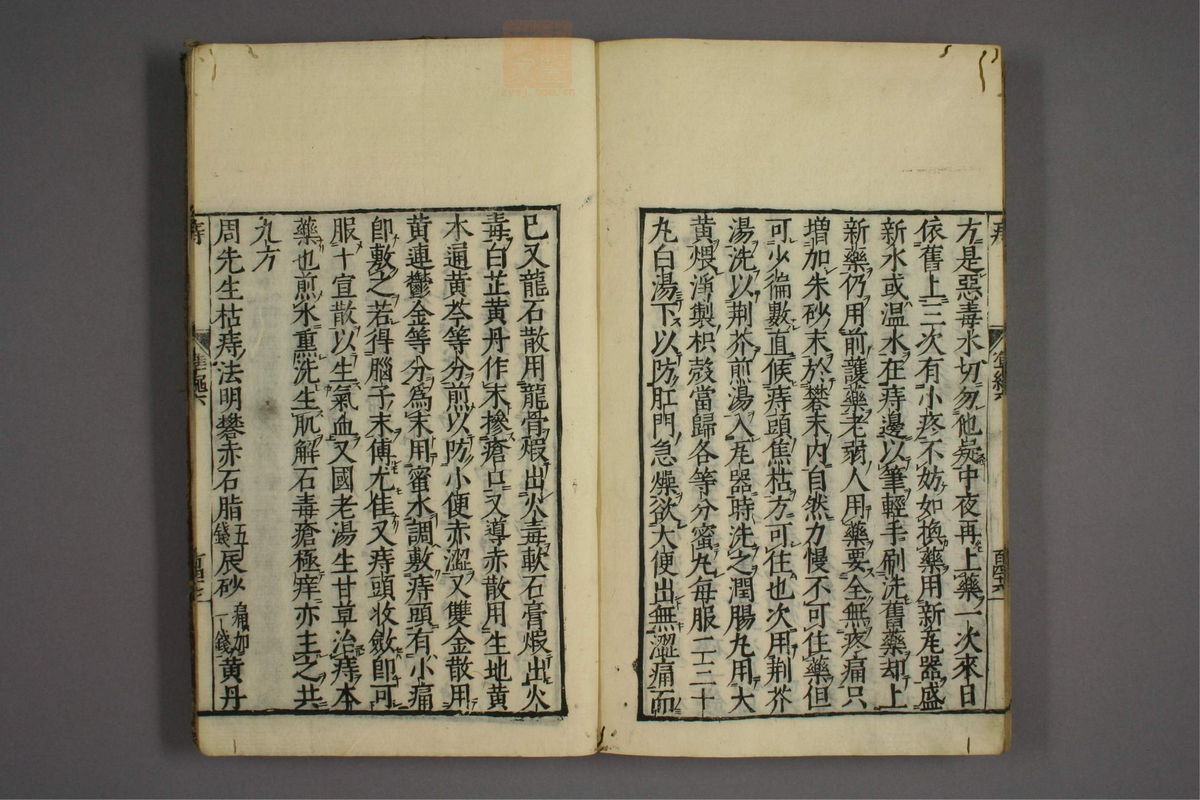 方是惡毒水切勿他疑中夜再上藥一次來日
依舊上三次有小疼不妨如換藥用新瓦器盛
新水或温水在痔邊以筆輕手刷洗舊藥却上
新藥仍用前護藥老弱人用藥要全無疼痛只
増加朱砂末於礬末内自然力慢不可住藥但
可少徧數直候痔頭焦枯方可住也次用荆芥
湯洗以荆芥煎湯入瓦器時洗之潤腸丸用大
黄煨淨製枳殼當歸各等分蜜丸每服二三十
丸白湯下以防肛門急燥欲大便出無澀痛而
已又龍石散用龍骨煆出火毒軟石膏煆出火
毒白芷黄丹作末摻瘡口又導赤散用生地黄
木通黄芩等分煎以防小便赤澀又雙金散用
黄連鬱金等分爲末用蜜水調敷痔頭有小痛
即敷之若得腦子末傅尤佳又痔頭收斂即可
服十宣散以生氣血又國老湯生甘草治痔本
藥也煎水熏洗生肌解石毒瘡極痒亦主之共
九方
周先生枯痔法明礬赤石脂五錢辰砂痛加一錢黄丹